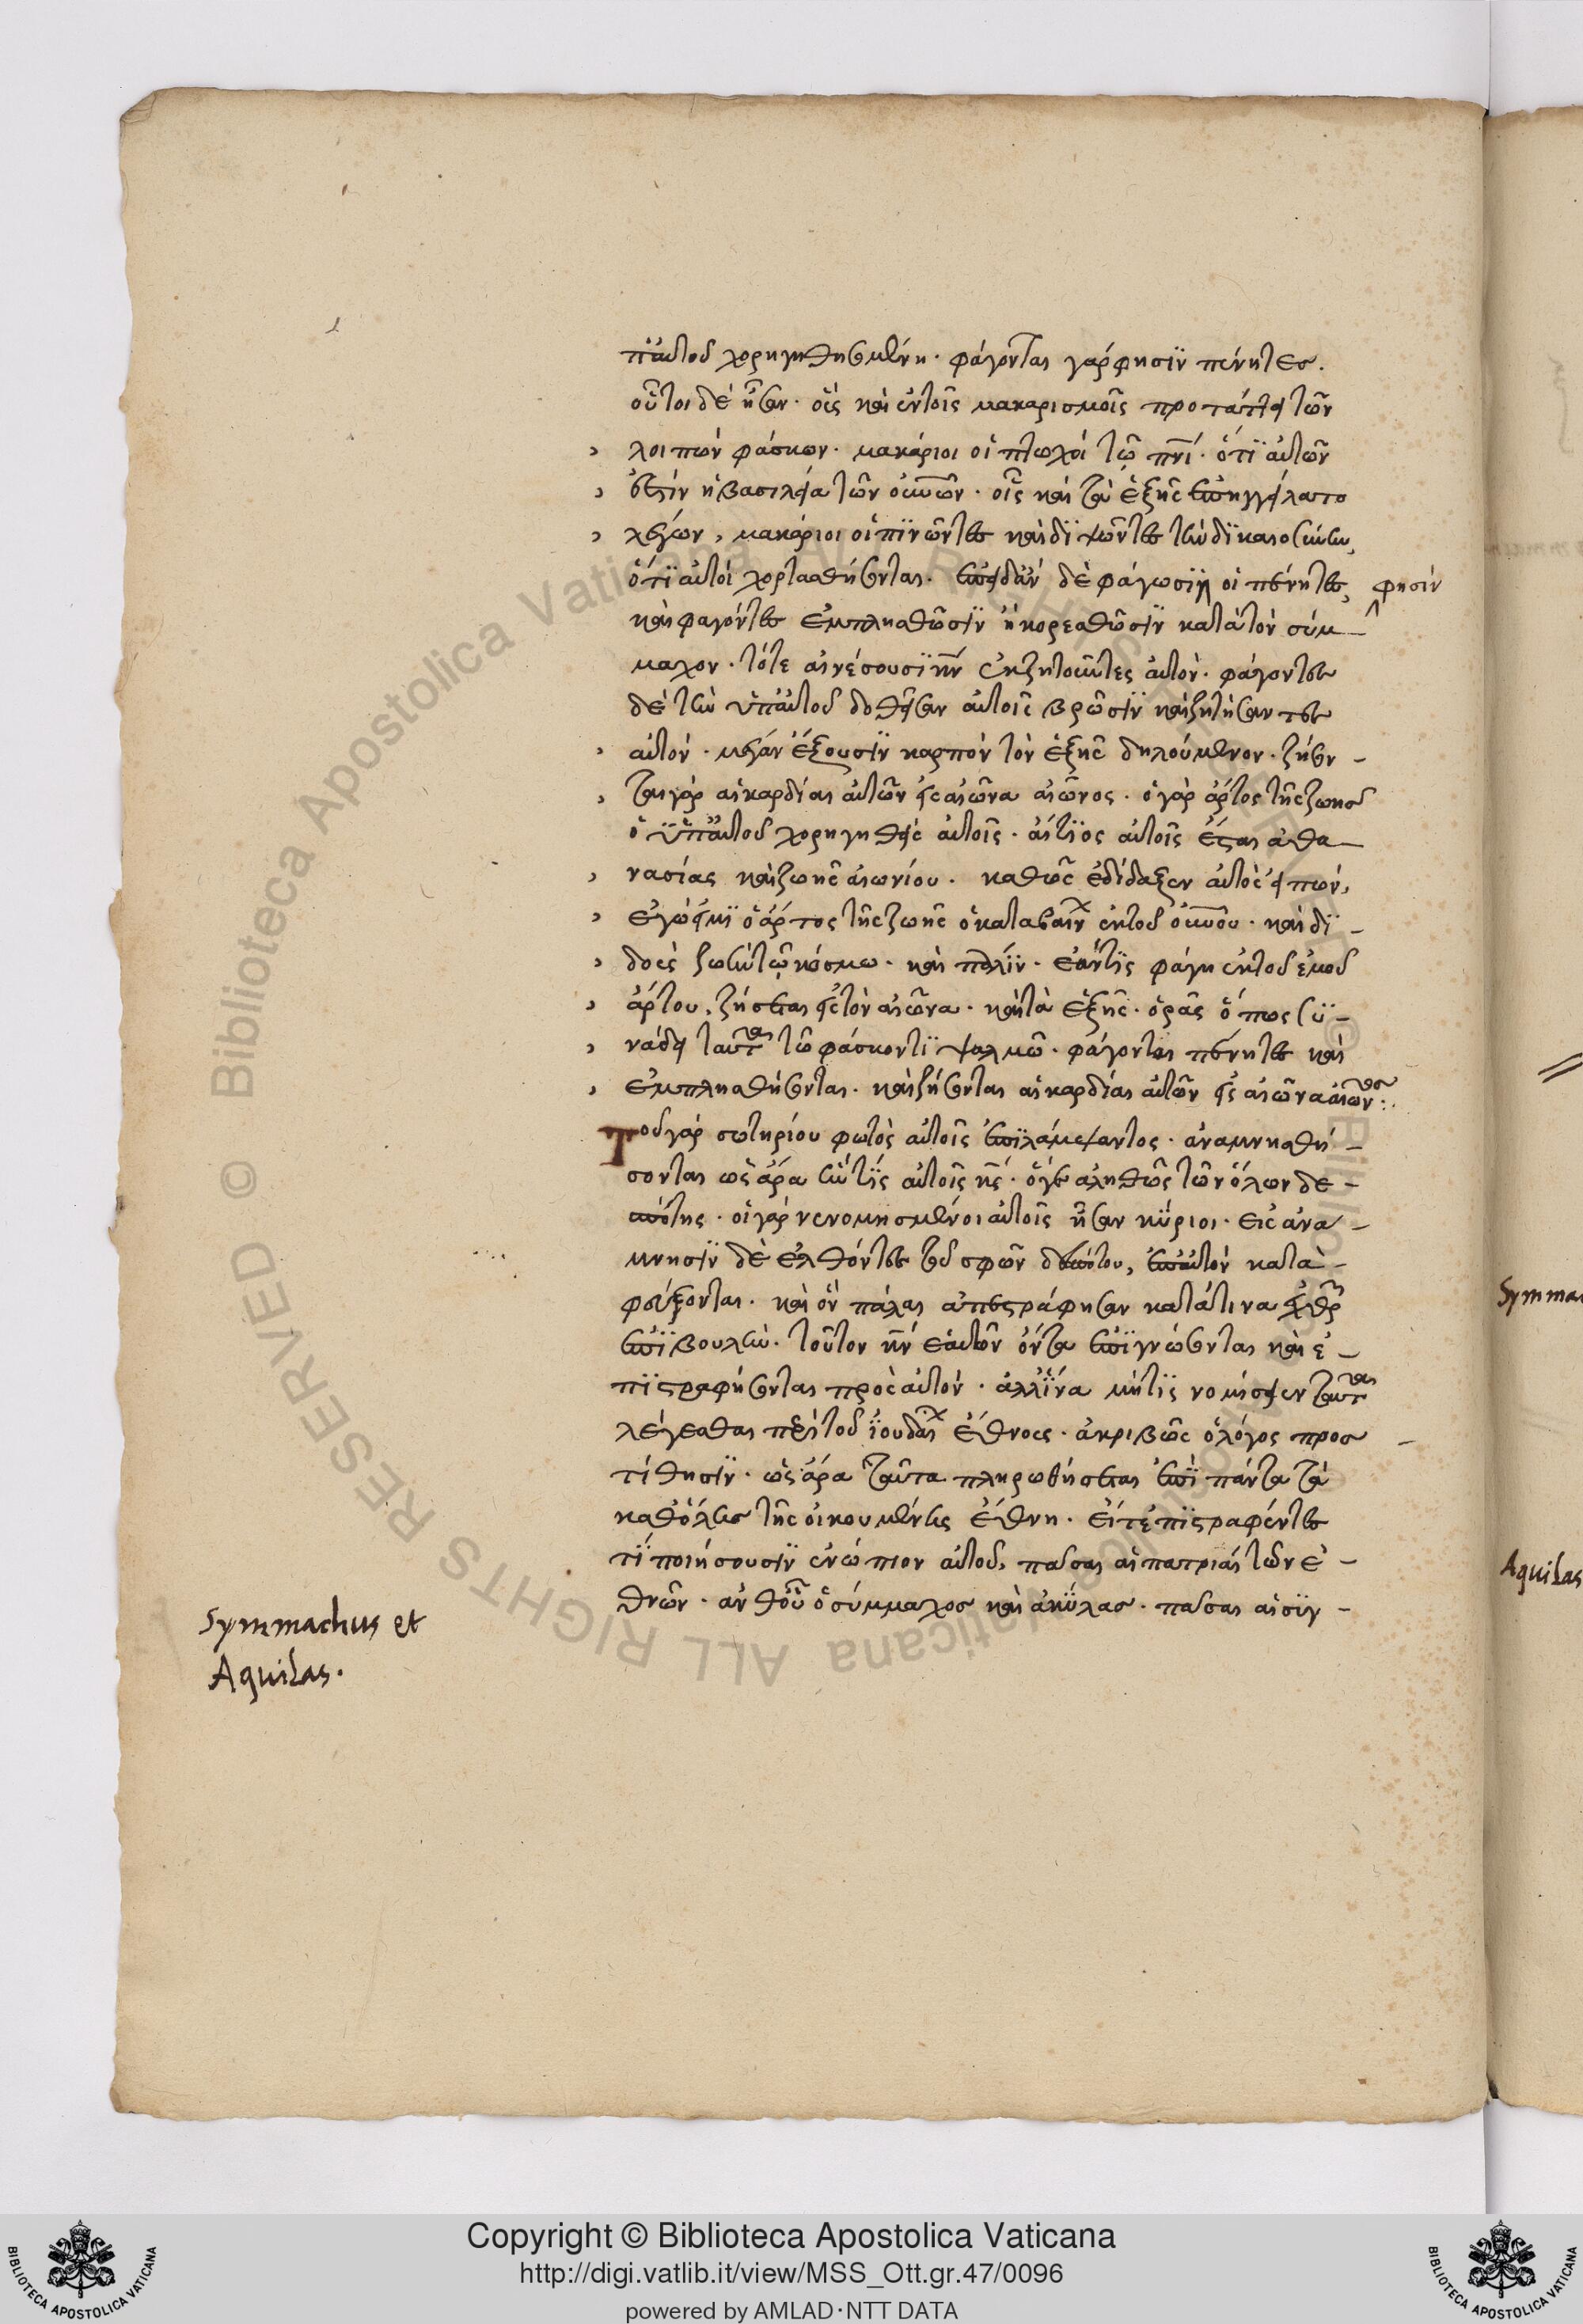 π' αὐτοῦ χορηγηθησομένη· φάγονται γάρ φησϊν πένητεσ.
οὗτοι δὲ ἦσαν· οὓς καὶ ἐν τοῖς μακαρισμοῖς προτάττει τῶν
λοιπῶν φάσκων· μακάριοι οἱ πτωχοὶ τῷ πνί· ὅτϊ αὐτῶν
ἐστὶν ἡ βασιλεία τῶν οὐνῶν· οἷς καὶ τὰ ἑξῆς ἐπηγγείλατο
λέγων, μακάριοι οἱ πϊνῶντες καὶ δϊψῶντες τὴν δϊκαιοσύνην,
ὅτϊ αὐτοὶ χορτασθήσονται. ἐπειδὰν δὲ φάγωσϊν οἱ πένητες, φησὶν
καὶ φαγόντες ἐμπλησθῶσϊν ἢ κορεσθῶσϊν κατὰ τὸν σύμ-
μαχον· τότε αἰνέσουσϊ κν ἐκζητοῦντες αὐτόν· φάγοντες
δὲ τὴν ὑπ' αὐτοῦ δοθεῖσαν αὐτοῖς βρῶσϊν καὶ ζητήσαντες
αὐτόν· μέγαν ἕξουσϊν καρπὸν τὸν ἑξῆς δηλούμενον· ζήσον-
ται γὰρ αἱ καρδίαι αὐτῶν εἰς αἰῶνα αἰῶνος· ὁ γὰρ ἄρτος τῆς ζωῆσ
ὁ ὑπ' αὐτοῦ χορηγηθεὶς αὐτοῖς· αἴτϊος αὐτοῖς ἔσται ἀθα-
νασίας καὶ ζωῆς αἰωνίου. καθὼς ἐδίδαξεν αὐτὸς εἰπών,
ἐγώ εἰμϊ ὁ ἄρτος τῆς ζωῆς ὁ καταβαίν ἐκ τοῦ οὐνοῦ· καὶ δϊ-
δοὺς ζωὴν τῷ κόσμω· καὶ πάλϊν· ἐάν τϊς φάγη ἐκ τοῦ ἐμοῦ
ἄρτου, ζήσεται εἰς τὸν αἰῶνα· καὶ τὰ ἑξῆς· ὁρᾶς ὅπως συ-
νάδει ταῦτα τῶ φάσκοντϊ ψαλμῶ· φάγονται πένητες καὶ
ἐμπλησθήσονται· καὶ ζήσονται αἱ καρδίαι αὐτῶν εἰς αἰῶνα αἰῶνος:
Τοῦ γὰρ σωτηρίου φωτὸς αὐτοῖς ἐπϊλάμψαντος· ἀναμνησθή-
σονται ὡς ἄρα ἦν τϊς αὐτοῖς κς· ὅγε ἀληθῶς τῶν ὅλων δε-
σπότης· οἱ γὰρ νενομησμένοι αὐτοῖς ἦσαν κύριοι· εἰς ἀνά-
μνησϊν δὲ ἐλθόντες τοῦ σφῶν δεσπότου, ἐπ' αὐτὸν κατα-
φεύξονται· καὶ ὃν πάλαι ἀπεστράφησαν κατά τινα ἐχθρ
ἐπϊβουλὴν· τοῦτον κν ἑαυτῶν ὄντα ἐπϊγνώσονται καὶ ἐ-
πϊστραφήσονται πρὸς αὐτόν· ἀλλ' ἵνα μή τϊς νομίσειεν ταῦτα
λέγεσθαι περὶ τοῦ ἰουδαί ἔθνους· ἀκριβῶς ὁ λόγος προσ-
τίθησϊν· ὡς ἄρα ταῦτα πληρωθήσεται ἐπὶ πάντα τὰ
καθ' ὅλης τῆς οἰκουμένης ἔθνη· εἶτ' ἐπϊστραφέντες
τϊ ποιήσουσϊν ἐνώπιον αὐτοῦ, πᾶσαι αἱ πατριαὶ τῶν ἐ-
θνῶν· ἀνθ' οὗ ὁ σύμμαχοσ καὶ ἀκύλασ· πᾶσαι αἱ σϋγ-
Symmachus et
Aquilas.
Symma
Aquilas
Copyright © Biblioteca Apostolica Vaticana
http://digi.vatlib.it/view/MSS_Ott.gr.47/0096
powered by AMLAD·NTT DATA